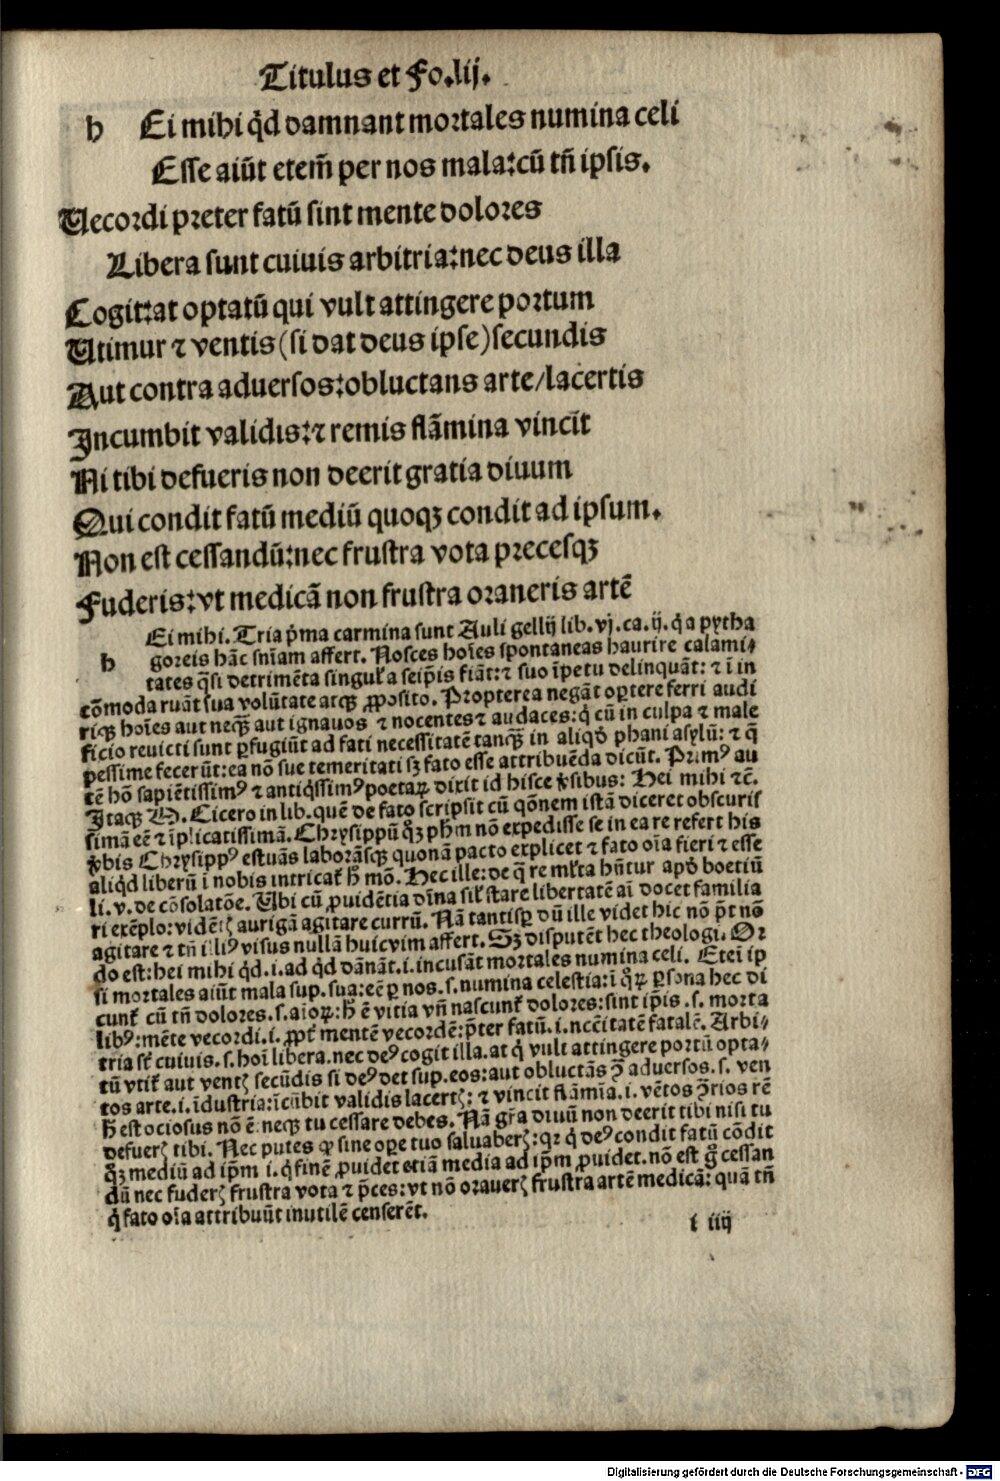 Titulus et Fo.lij.
h Ei mihi qđ damnant mortales numina celi
Esse aiūt etem̄ per nos mala:cū tn̄ ipsis.
Vecordi preter fatū sint mente dolores
Libera sunt cuiuis arbitria:nec deus illa
Cogit:at optatū qui vult attingere portum
Utimur ⁊ ventis (si dat deus ipse) secundis
Aut contra aduersos:obluctans arte/lacertis
Incumbit validis:⁊ remis flāmina vincit
Ni tibi defueris non deerit gratia diuum
Qui condit fatū mediū quoqꝫ condit ad ipsum.
Non est cessandū:nec frustra vota precesqꝫ
Fuderis:vt medicā non frustra oraneris artē
Ei mihi. Tria p̄ma carmina sunt Auli gellij lib. vj. ca. ij. q̇ a pytha
h goreis hāc sn̄iam affert. Nosces hoīes spontaneas haurire calami⸗
tates q̄si detrimēta singul'a seip̄is fiāt:⁊ suo īpetu delinquāt: ⁊ ī in
cōmoda ruāt sua volūtate atqꝫ ꝓposito. Propterea negāt oꝑtere ferri audi
riqꝫ hoīes aut neqꝫ aut ignauos ⁊ nocentes ⁊ audaces:q̇ cū in culpa ⁊ male
ficio reuicti sunt ꝑfugiūt ad fati necessitatē tanqꝫ in aliqđ phani asylū: ⁊ q̄
pessime fecerūt:ea nō sue temeritati sꝫ fato esse attribuēda dicūt. Primꝰ au
tē hō sapiētissimꝰ ⁊ antiq̇ssimꝰ poetaꝝ dixit id hisce v̓sibus: Hei mihi ⁊c̄.
Itaqꝫ M. Cicero in lib. quē de fato scripsit cū qōnem istā diceret obscuris
simā eē ⁊ īplicatissimā. Chrysippū qꝫ ph̄m nō expedisse se in ea re refert his
v̓bis Chrysippꝰ estuās laborāsqꝫ quonā pacto explicet ⁊ fato oīa fieri ⁊ esse
aliqđ liberū ī nobis intricat' h̄ mō. Hec ille: de q̄ re ml'ta hn̄tur apđ boetiū
li. v. de cōsolatōe. Ubi cū ꝓuidētia dīna sil' stare libertatē aī docet familia
ri exēplo: vidētꝭ aurigā agitare currū. Nā tantisꝑ dū ille videt hic nō p̄t nō
agitare ⁊ tn̄ illiꝰ visus nullā huic vim affert. Sꝫ disputēt hec theologi. Or
do est: hei mihi qđ.i.ad qđ dānāt.i.incusāt mortales numina celi. Etei ip
si mortales aiūt mala sup. sua:eē ꝑ nos.s.numina celestia:ī q̇ꝝ ꝑsona hec di
cunt' cū tn̄ dolores.s.aioꝝ:h̄ ē vitia vn̄ nascunt' dolores:sint ip̄is.s.morta
libꝰ:mēte vecordi.i.ꝓpt' mentē vecordē:p̄ter fatū.i.nc̄citatē fatalē. Arbi⸗
tria st' cuiuis.s.hoī libera.nec deꝰ cogit illa.at q̇ vult attingere portū opta⸗
tū vtit' aut ventꝭ secūdis si deꝰ det sup.eos:aut obluctās ꝯ̄ aduersos.s.ven
tos arte.i.īdustria:īcūbit validis lacertꝭ: ⁊ vincit flāmīa.i.vētos ꝯ̄rios rē
h̄ est ociosus nō ē: neqꝫ tu cessare debes. Nā gr̄a diuū non deerit tibi nisi tu
defuerꝭ tibi. Nec putes ꝙ sine oꝑe tuo saluaberꝭ:qꝛ q̇ deꝰ condit fatū cōdit
qꝫ mediū ad ip̄m i.q̇ finē ꝓuidet etiā media ad ip̄m ꝓuidet.nō est g̊ cessan
dū nec fuderꝭ frustra vota ⁊ p̄ces:vt nō orauerꝭ frustra artē medicā: quā tn̄
q̇ fato oīa attribuūt inutilē censerēt.
i iiij
Digitalisierung gefördert durch die Deutsche Forschungsgemeinschaft - DFG